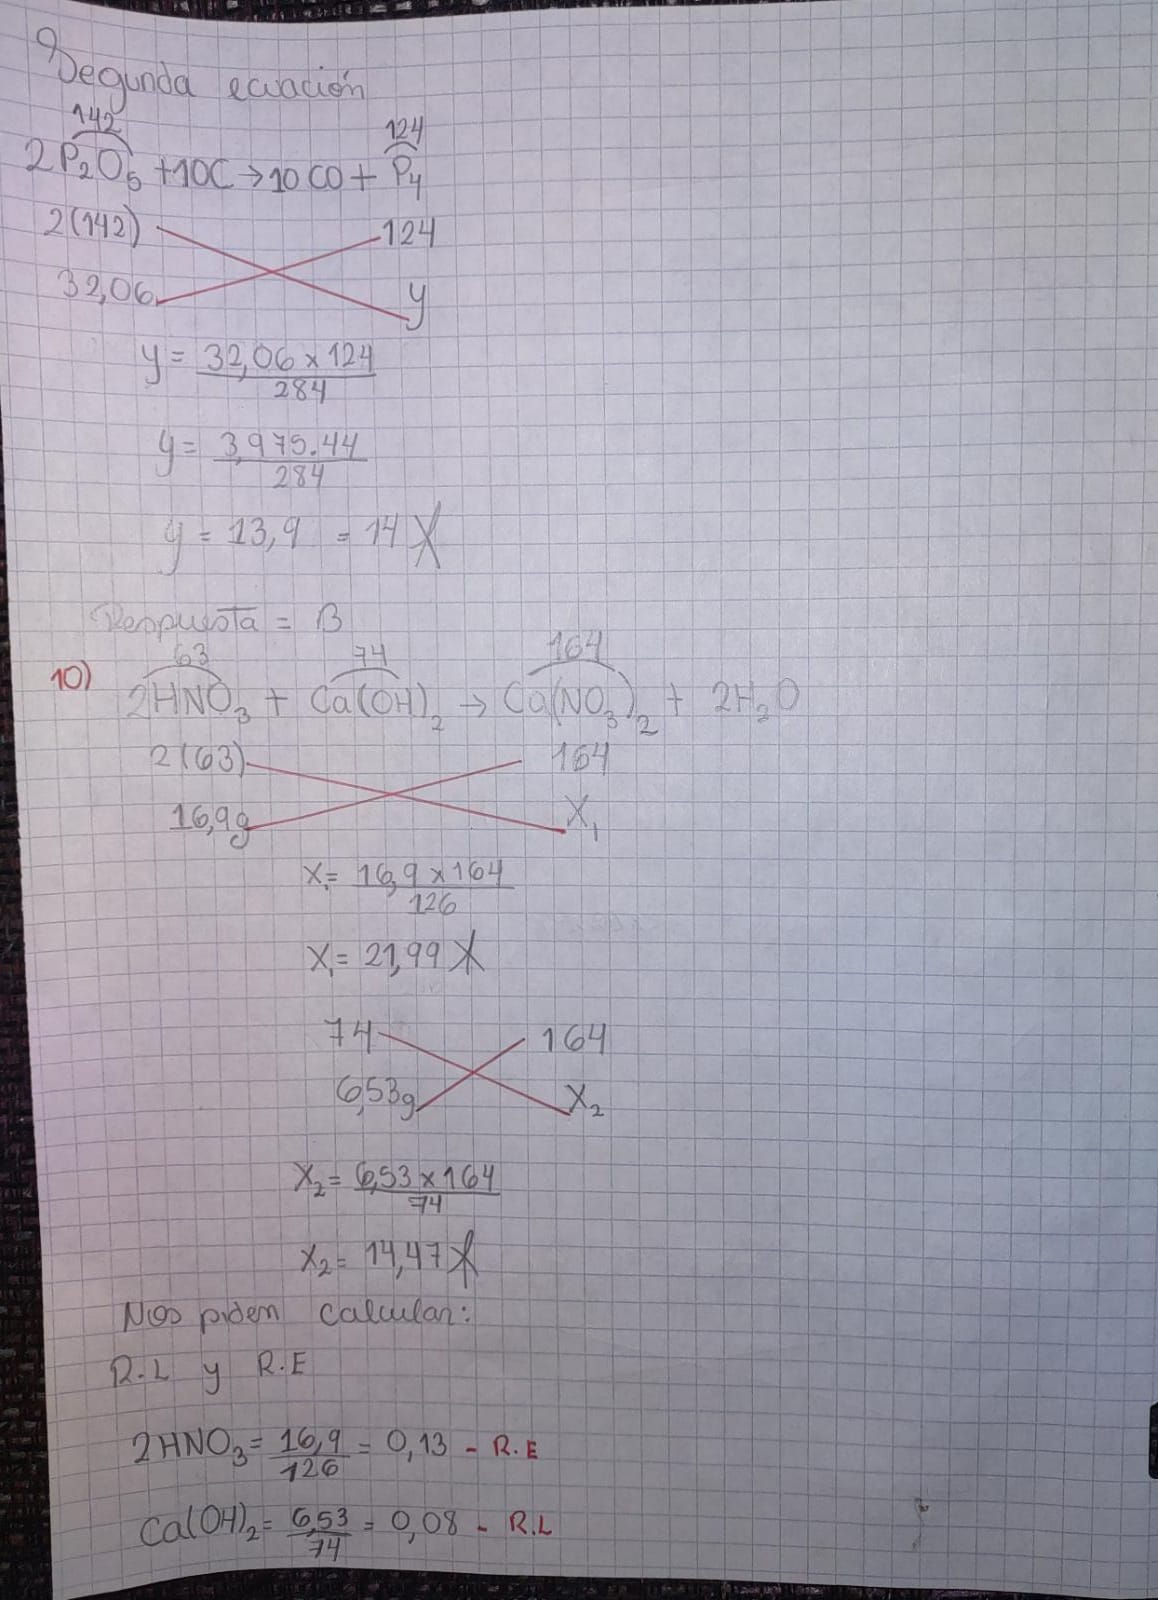 Segunda ecuación
142 124
2P₂O₅ + 10C → 10CO + P₄
2(142) 124
32,06 y
y = 32,06 x 124
284
y = 3,975.44
284
y = 13,9 = 14
Respuesta = B
63 74 164
10) 2HNO₃ + Ca(OH)₂ → Ca(NO₃)₂ + 2H₂O
2(63) 164
16,9g X₁
X₁ = 16,9 x 164
126
X₁ = 21,99
74 164
6,53g X₂
X₂ = 6,53 x 164
74
X₂ = 14,47
Nos piden calcular:
R.L y R.E
2HNO₃ = 16,9 = 0,13 - R.E
126
Ca(OH)₂ = 6,53 = 0,08 - R.L
74